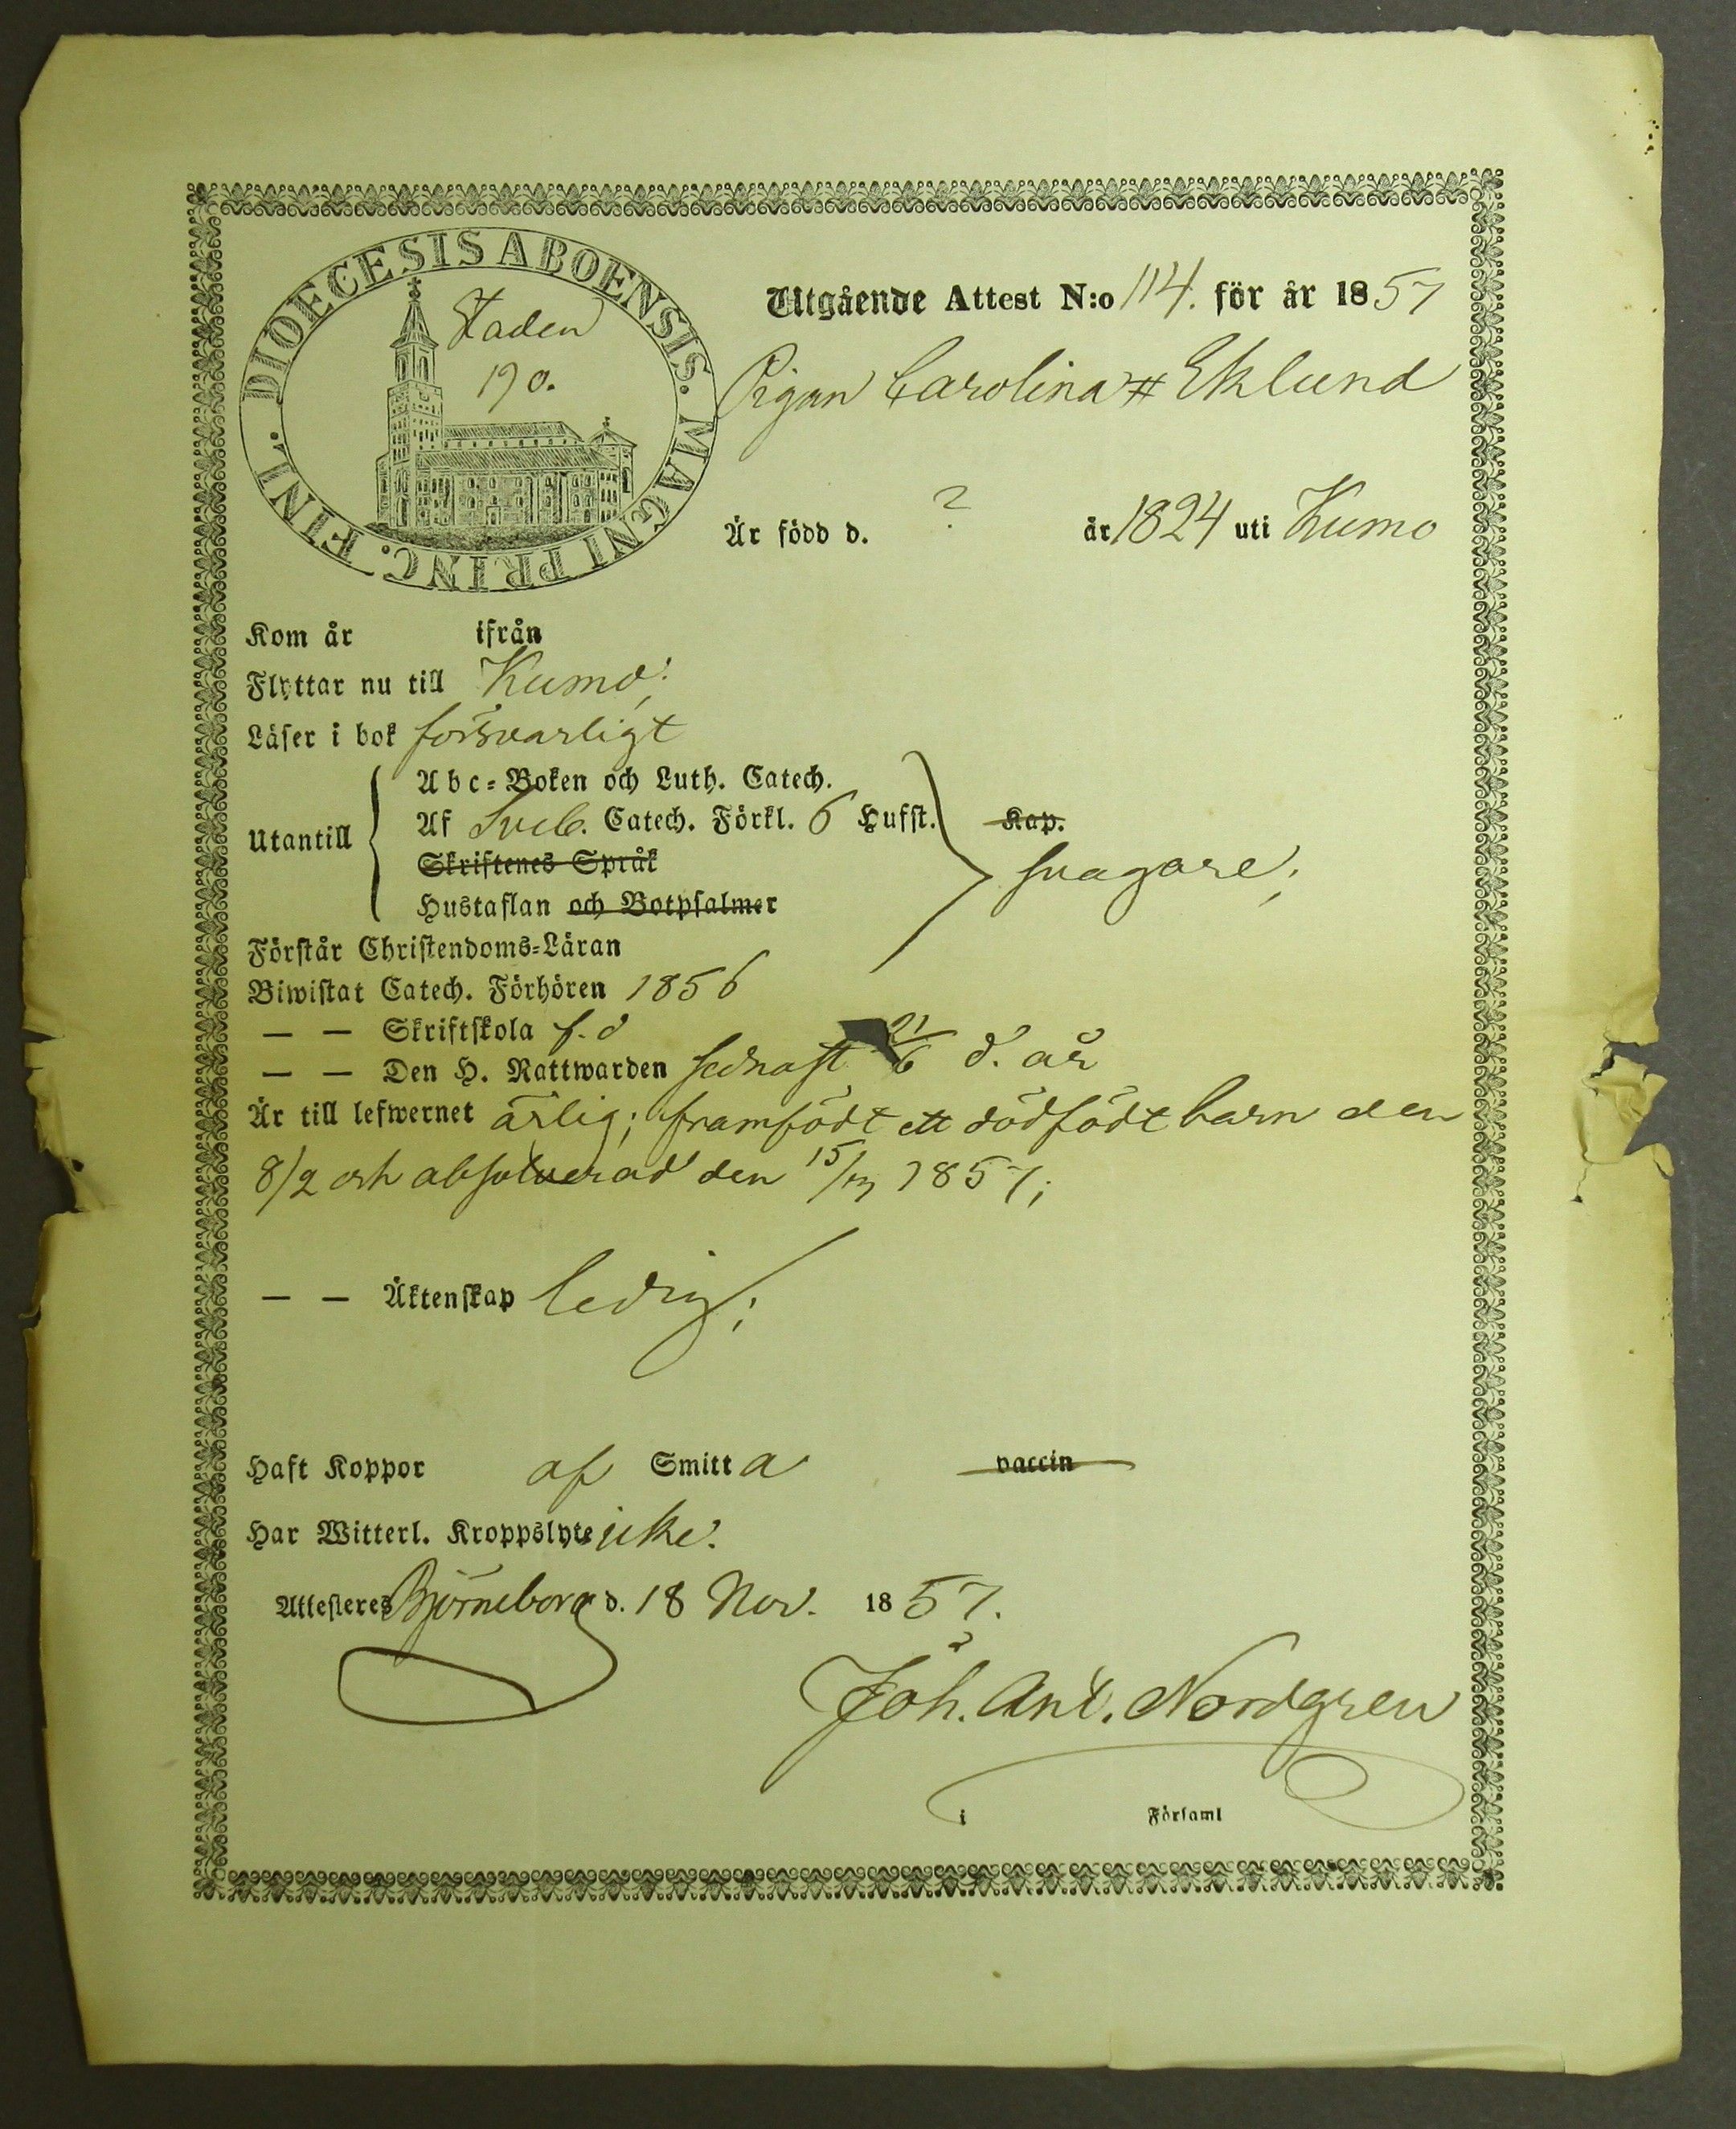 DIOECESIS ABOENSIS. MAGNI PRINC. FINL.
Staden
190.
Utgående Attest N:o 114. för år 1857
Pigan Carolina # Eklund
Är född d. ? år 1824 uti Kumo
Kom år ifrån
Flyttar nu till Kumo;
Läser i bok försvarligt
Utantill
Abc-Boken och Luth. Catech.
Af Sveb. Catech. Förkl. 6 Hufst. Kap.
Skriftenes Språk
Hustaflan och Botpsalmer
svagare;
Förstår Christendoms-Läran
Biwistat Catech. Förhören 1856
— — Skriftskola f.d
— — Den H. Nattwarden sednast 21/6 d. år
Är till lefwernet ärlig; framfödt ett dödfödt barn den
8/2 och absolverad den 15/ 1857;
— — Äktenskap ledig;
Haft Koppor af Smitta vaccin
Har Witterl. Kroppslyte icke.
Attesteres Björneborg d. 18 Nov. 1857.
Joh. Ant. Nordgren
i Församl